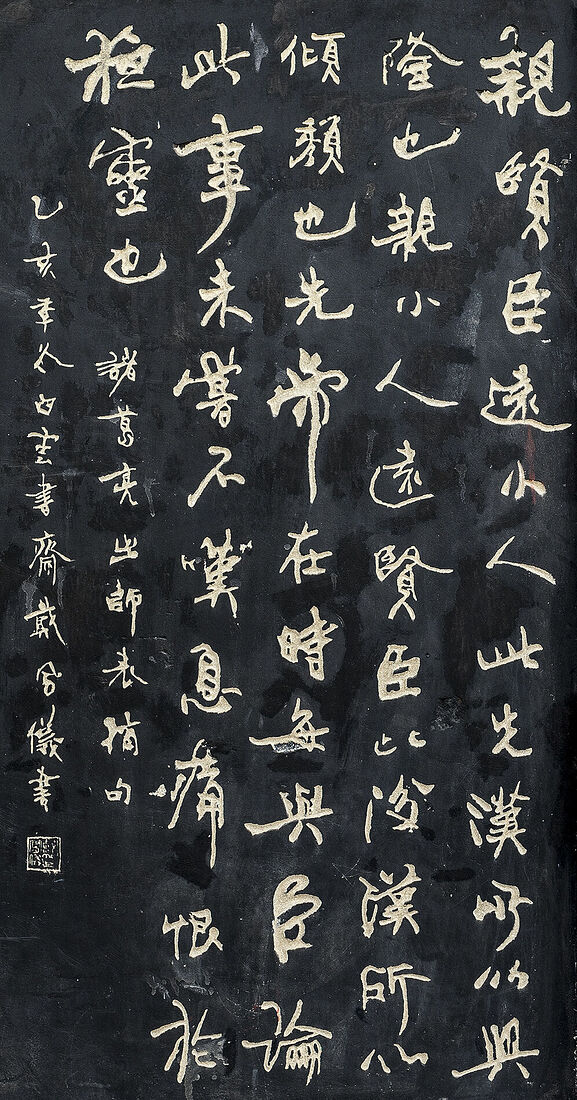 親賢臣遠小人此先漢所以興
隆也親小人遠賢臣此後漢所以
傾頹也先帝在時每與臣論
此事未嘗不嘆息痛恨於
桓靈也
諸葛亮出師表摘句
乙亥季白雲書齋戴儀書